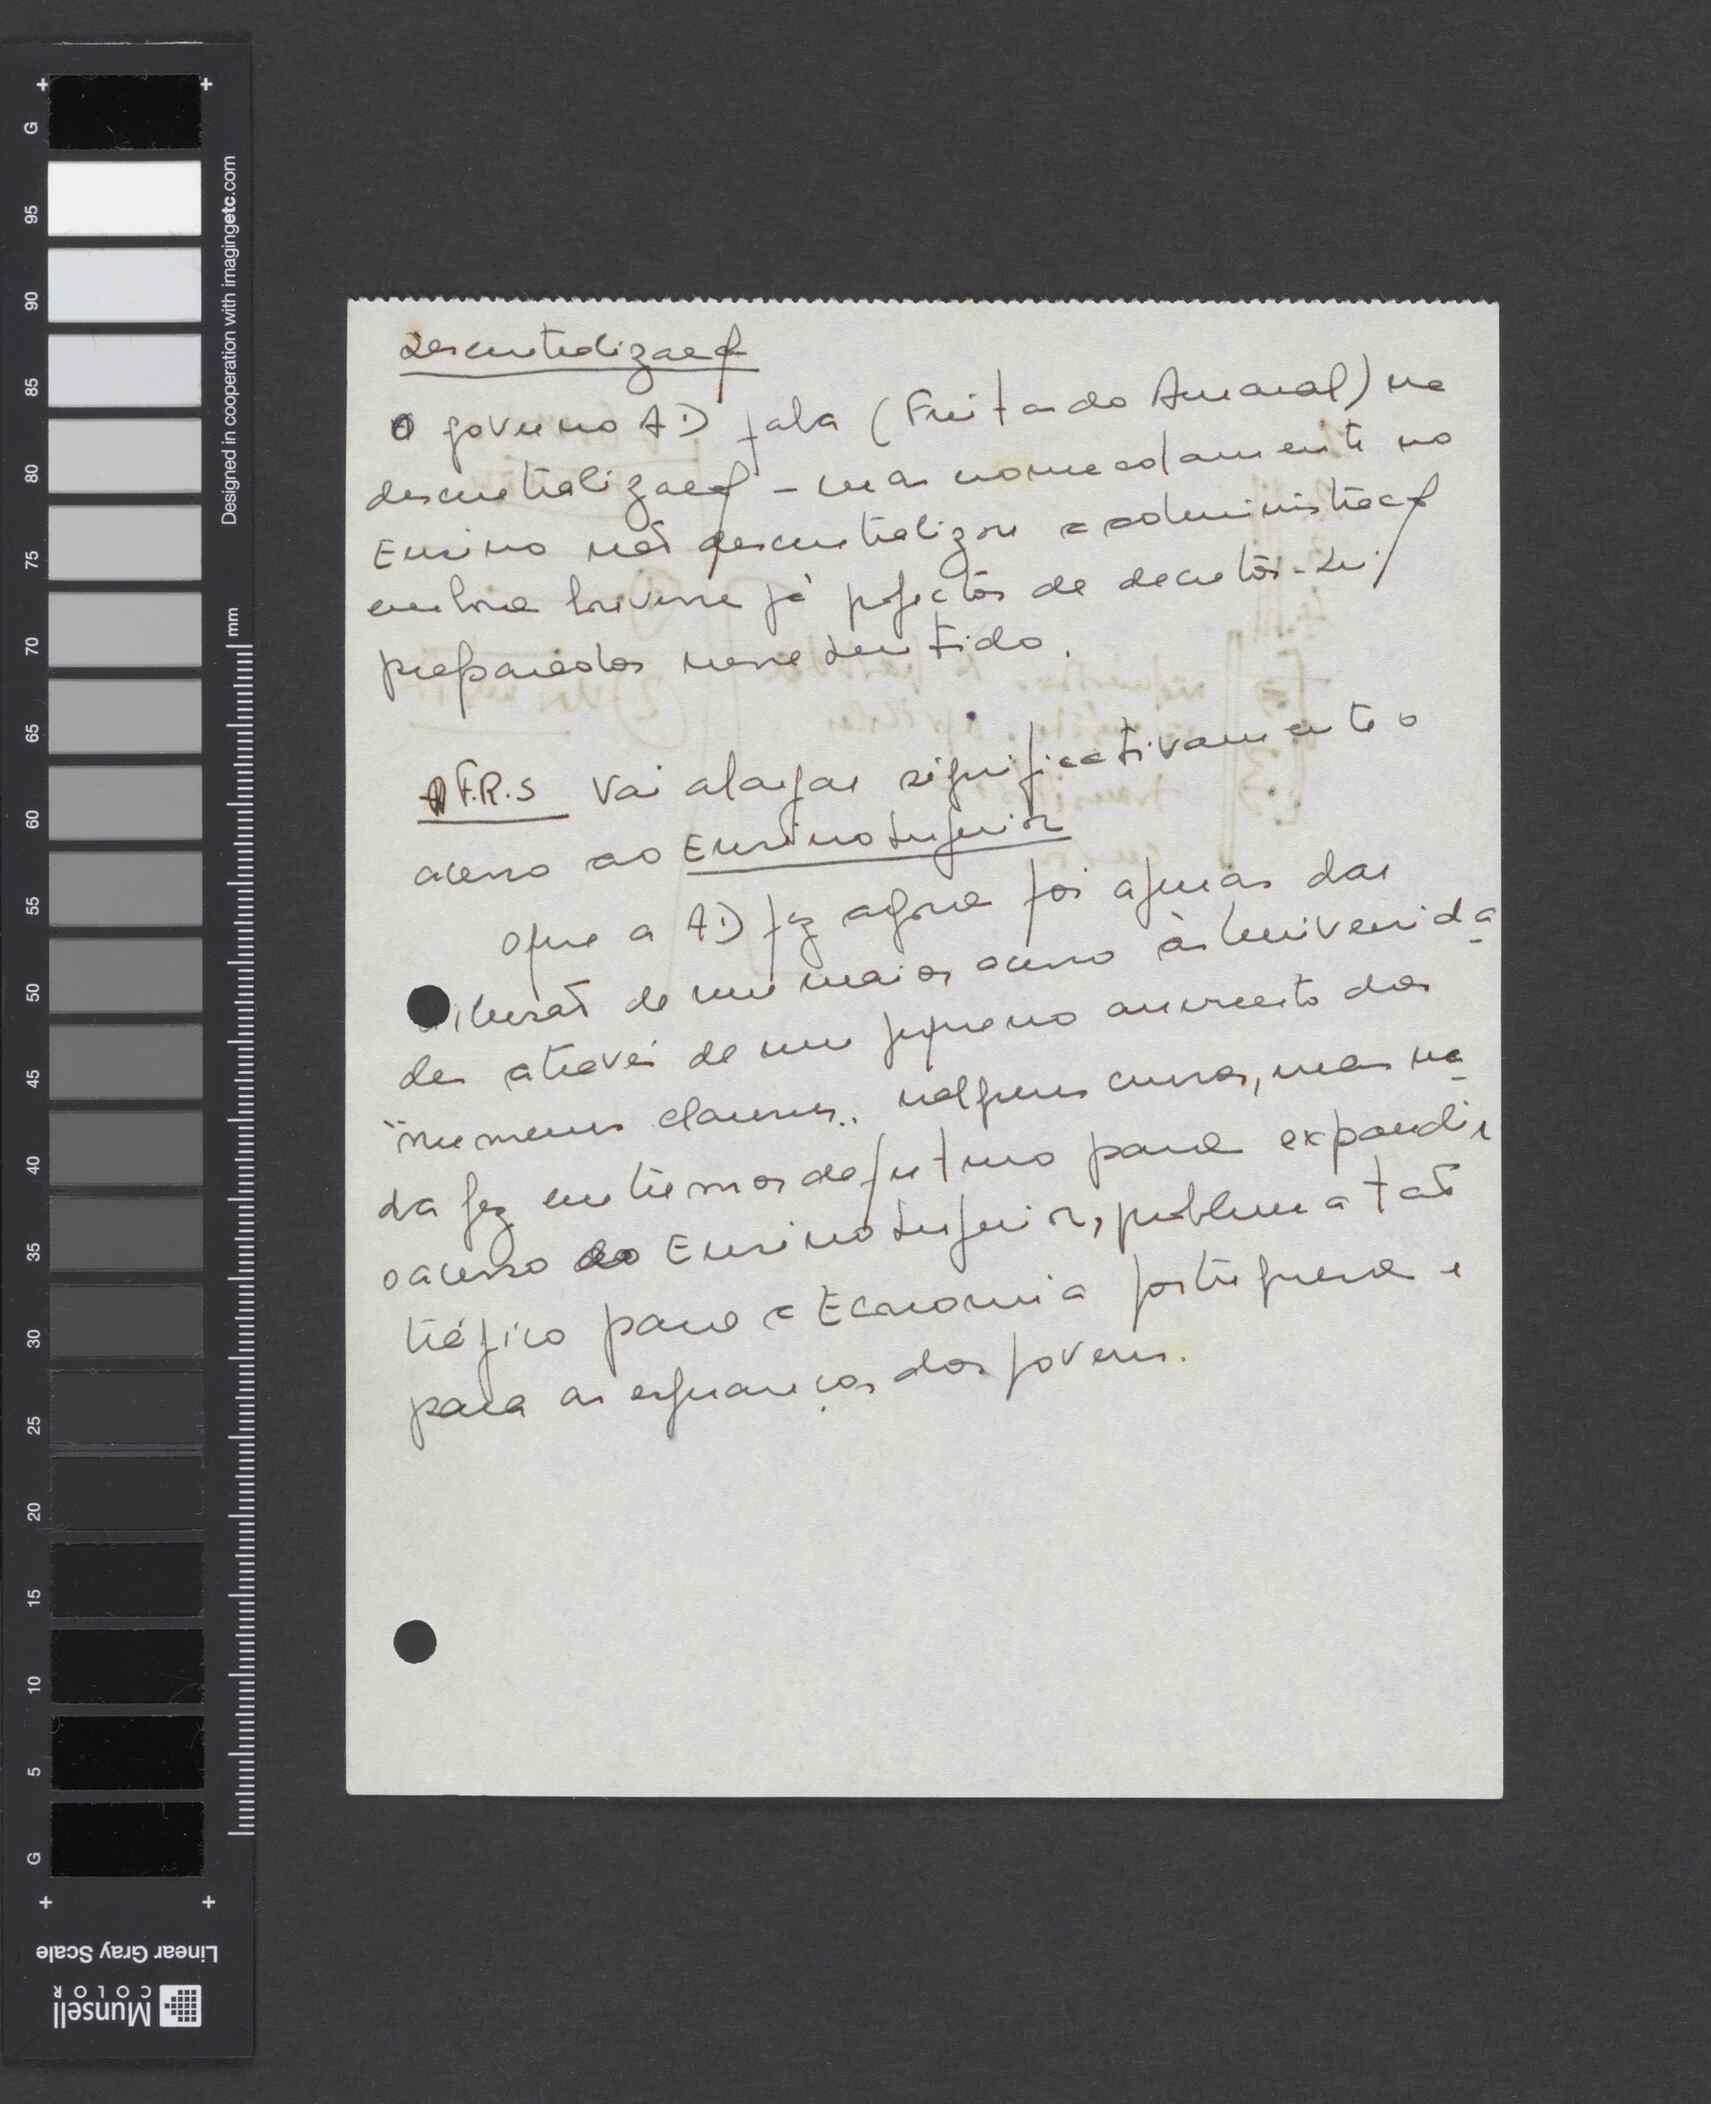 G
95
90
85
80
75
70
65
60
55
50
45
40
35
30
25
20
15
10
5
G
Designed in cooperation with imagingetc.com
mm
Linear Gray Scale
Munsell
COLOR
Descentralização
O governo AD fala (Freitas do Amaral) na
descentralização - mas nomeadamente no
Ensino não descentralizou a administração
embora houvesse já projectos de decretos-Lei
preparados nesse sentido.
A F.R.S vai alargar significativamente o
acesso ao Ensino Superior
O que a AD fez agora foi apenas dar
ilusão de um maior acesso às Universida
des através de um pequeno aumento dos
"numerus clausus" nalguns cursos, mas na
da fez em termos de futuro para expandir
o acesso ao Ensino Superior, problema tão
trágico para a Economia portuguesa e
para as esperanças dos jovens.